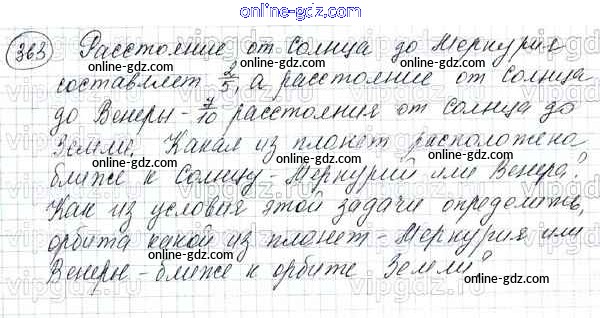 online-gdz.com
363 Расстояние от Солнца до Меркурия
составляет 2/5, а расстояние от Солнца
до Венеры - 7/10 расстояния от Солнца до
Земли. Какая из планет расположена
ближе к Солнцу - Меркурий или Венера?
Как из условия этой задачи определить,
орбита какой из планет - Меркурия или
Венеры - ближе к орбите Земли?
online-gdz.com
online-gdz.com
online-gdz.com
online-gdz.com
online-gdz.com
online-gdz.com
online-gdz.com
online-gdz.com
online-gdz.com
online-gdz.com